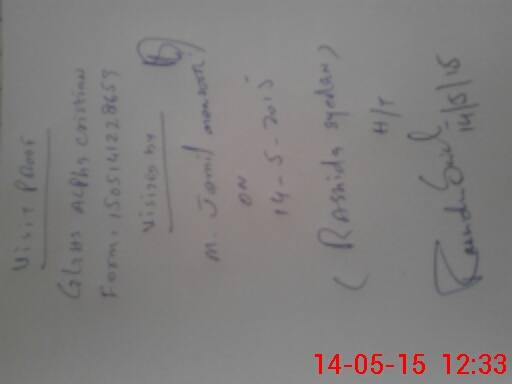 Visit Proof
GGHS Alpha cristian
Form: 1505141228659
Visited by
M. Jamil
ON
14-5-2015
(Rashida Syedan)
H/T
14/5/15
14-05-15 12:33